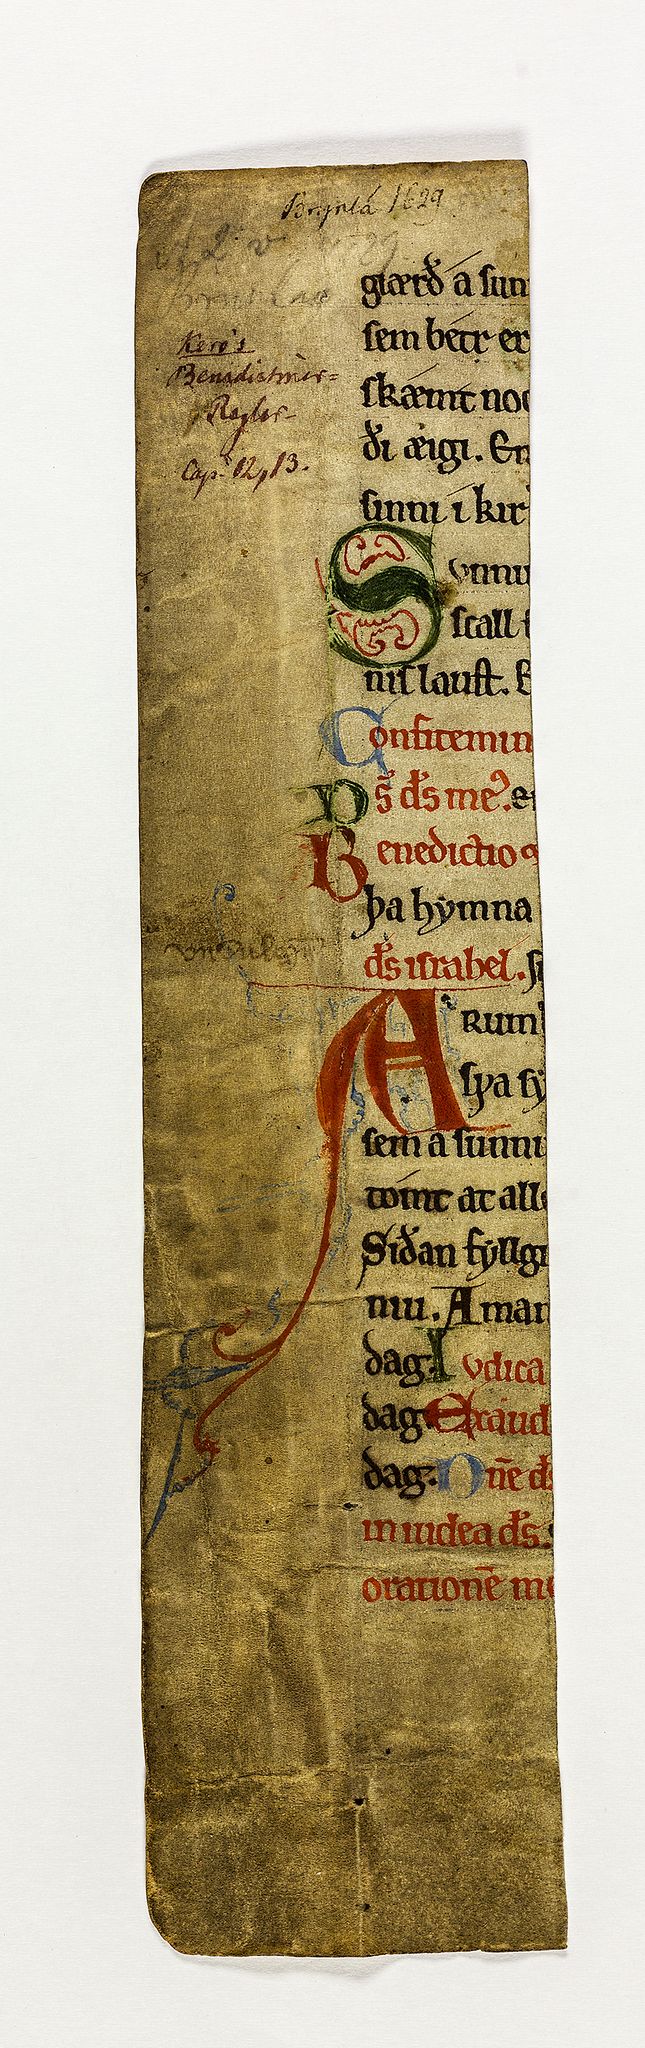 1629
Kero's
Benedictiner=
Regler
Cap. 12, 13.
giærð a sun
sem betr er
skæmt noc
ði æigi. En
sinni i kir
Sunnu
scall
nis laust. E
Confitemin
ps d̄s me᾿. e
Benedictio
þa hẏmna
d̄s israhel. s
ARum
sẏa sẏ
sem a sunnu
tomt at alle
Siðan fẏllgi
niu. A man
dag. Iudica
dag. Exaud
dag. Dn̄e d̄s
in iudea d̄s.
orationē me